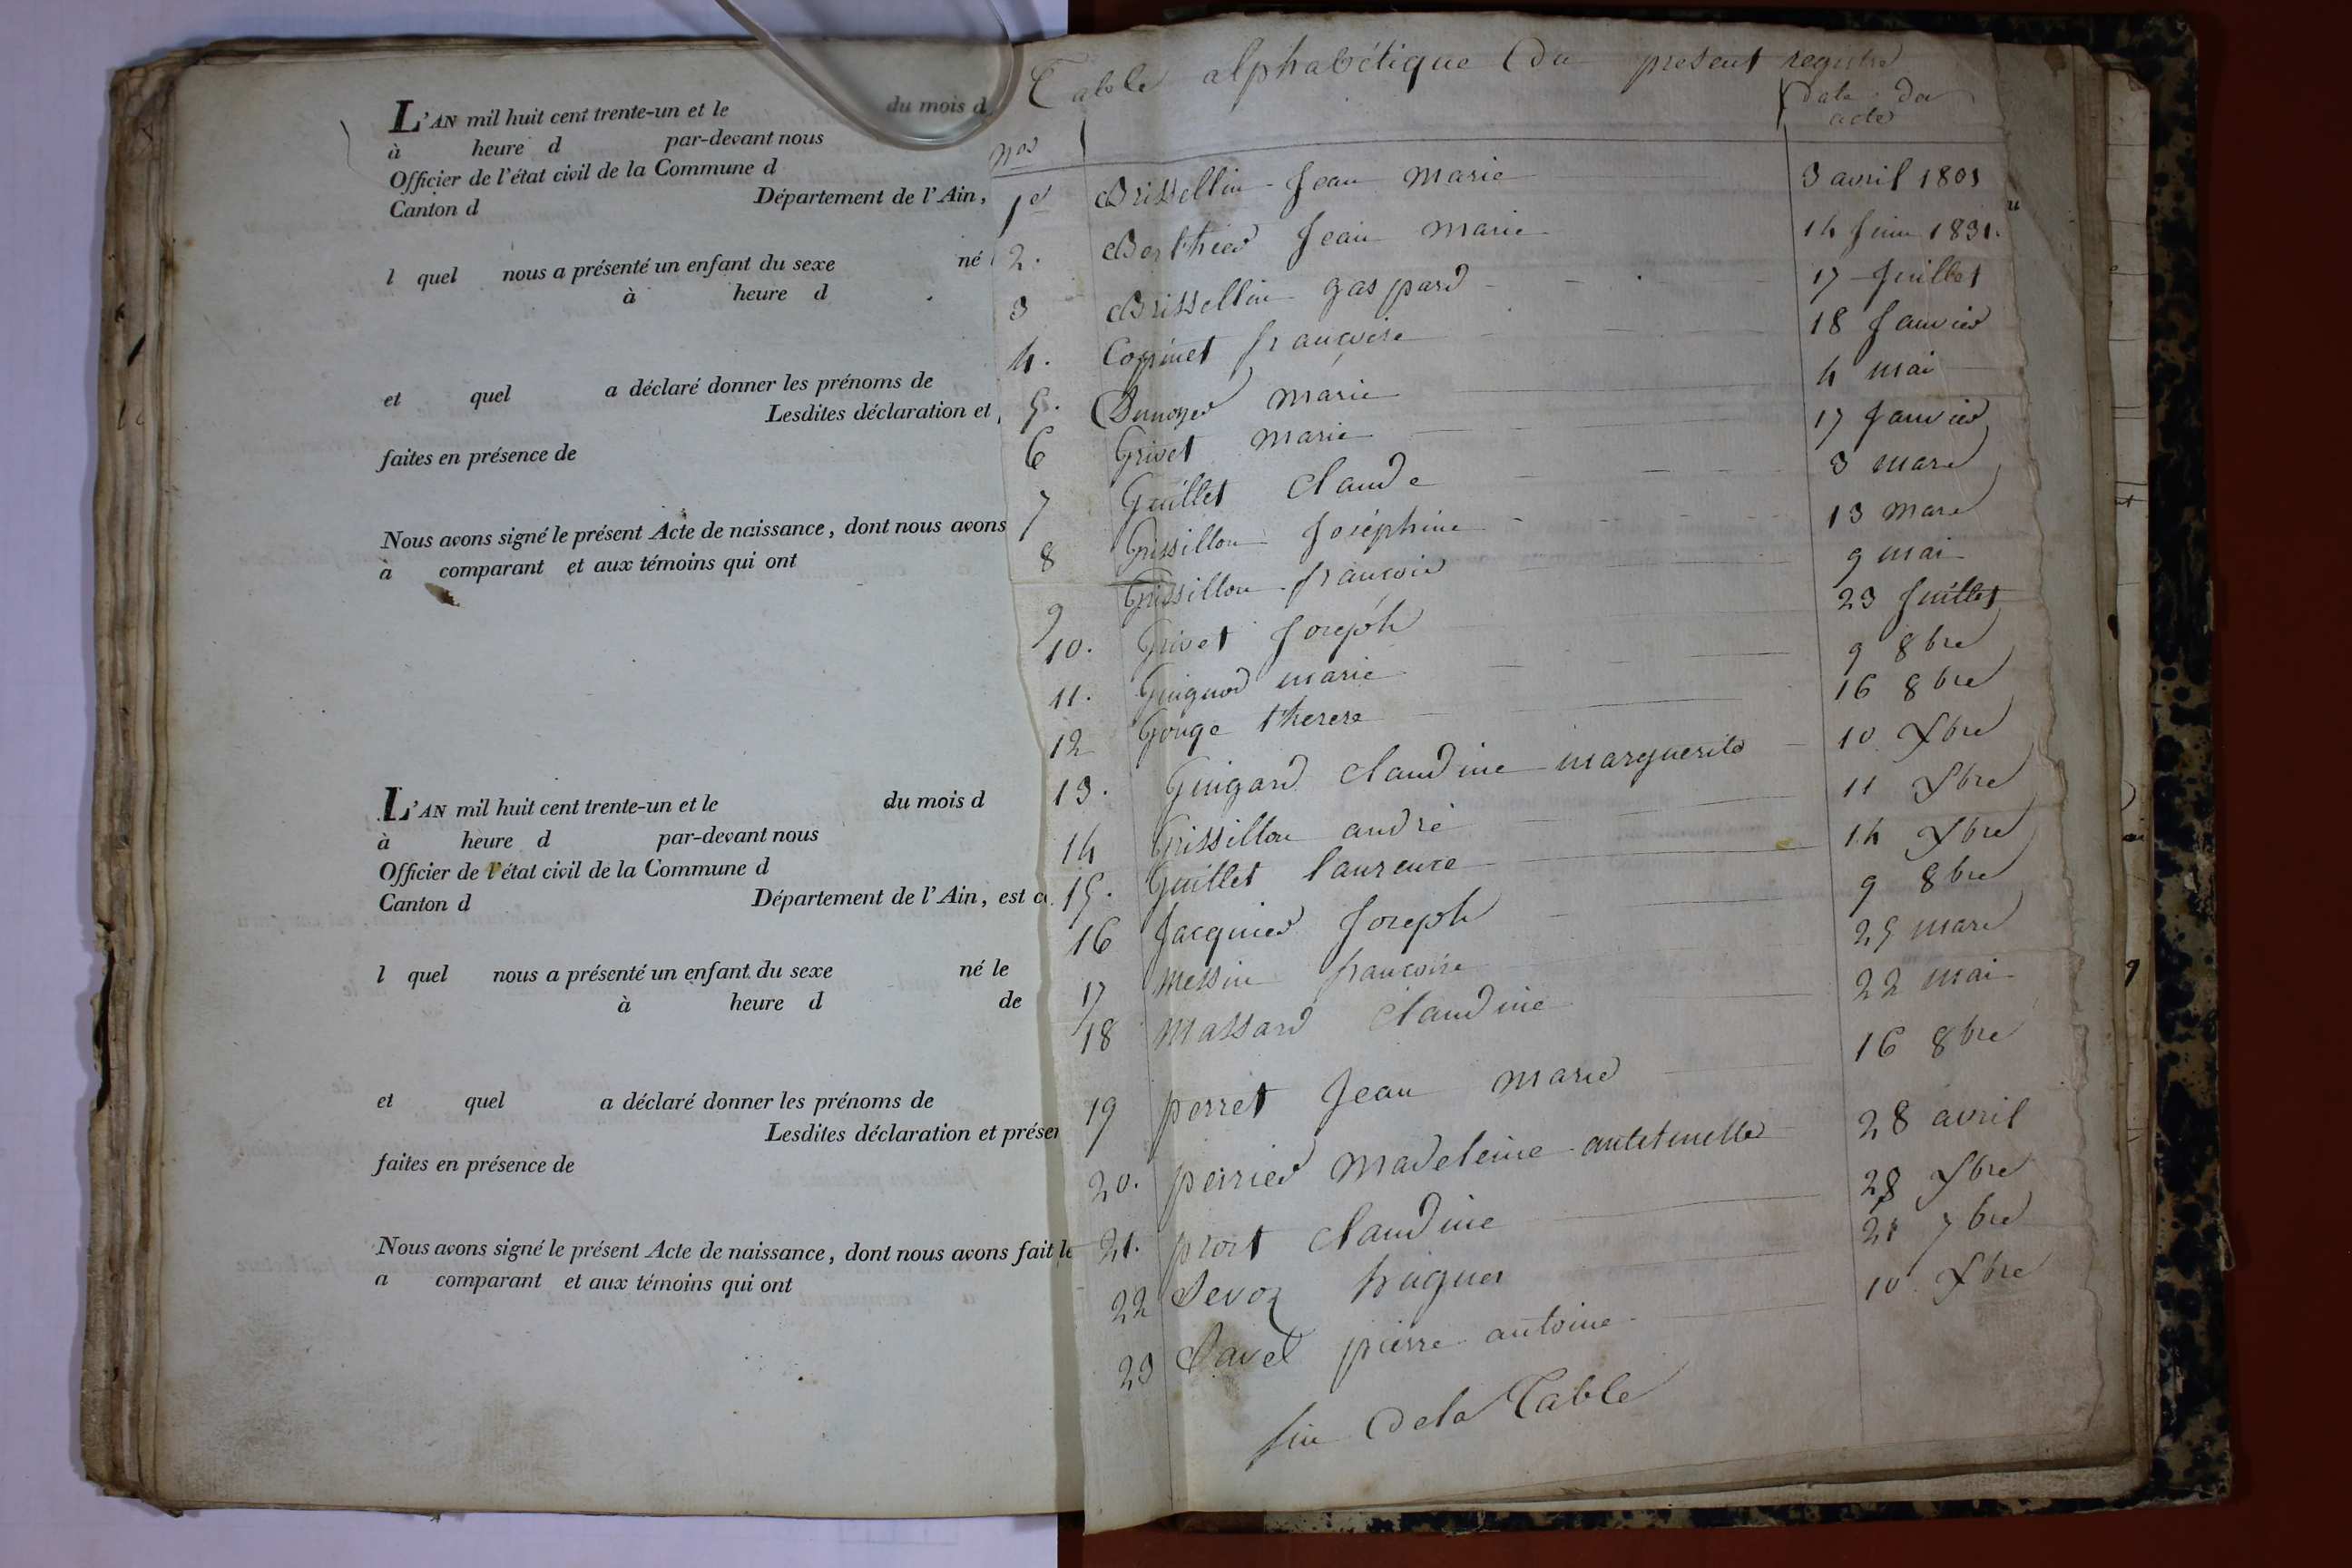 L'AN mil huit cent trente-un et le du mois d
à heure d par-devant nous
Officier de l'état civil de la Commune d
Canton d Département de l'Ain,
l quel nous a présenté un enfant du sexe né
à heure d
et quel a déclaré donner les prénoms de
Lesdites déclaration et
faites en présence de
Nous avons signé le présent Acte de naissance, dont nous avons
à comparant et aux témoins qui ont
L'AN mil huit cent trente-un et le du mois d
à heure d par-devant nous
Officier de l'état civil de la Commune d
Canton d Département de l'Ain, est c
l quel nous a présenté un enfant du sexe né le
à heure d de
et quel a déclaré donner les prénoms de
Lesdites déclaration et présen
faites en présence de
Nous avons signé le présent Acte de naissance, dont nous avons fait le
a comparant et aux témoins qui ont
Table alphabétique Du present registre
nos Date Da acte
1er Brissellin Jean Marie 3 avril 1831
2. Berthier Jean Marie 14 Juin 1831.
3 Brissellin gaspard 17 Juillet
4. Coppinet françoise 18 Janvier
5. Dunoyer Marie 4 mai
6 Grivet Marie 17 Janvier
7 Guillet Claude 3 mars
8 Grissillon Joséphine 13 mars
9 Grissillon françois 9 mai
10. Grivet Joseph 23 Juillet
11. Guignod marie 9 8bre
12 Gouge therese 16 8bre
13. Guigard Claudine marguerite 10 Xbre
14 Grissillon andré 11 Xbre
15. Guillet laurence 14 Xbre
16 Jacquier Joseph 9 8bre
17 Messin françoise 25 mars
18 Massard Claudine 22 mai
19 perret Jean Marie 16 8bre
20. perrier Madeleine 28 avril
21. prost Claudine 28 Xbre
22 Sevoz hugues 21 7bre
23 Savel pierre antoine 10 Xbre
fin De la Table